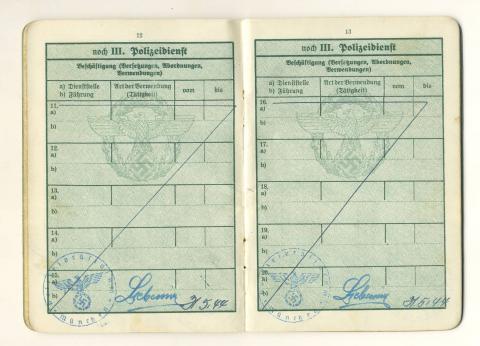 12
noch III. Polizeidienst
Beschäftigung (Versetzungen, Abordnungen,
Verwendungen)
a) Dienststelle
b) Führung
Art der Verwendung
(Tätigkeit)
vom
bis
11.
a)
b)
12.
a)
b)
13.
a)
b)
14.
a)
b)
15.
a)
b)
31.5.44
13
noch III. Polizeidienst
Beschäftigung (Versetzungen, Abordnungen,
Verwendungen)
a) Dienststelle
b) Führung
Art der Verwendung
(Tätigkeit)
vom
bis
16.
a)
b)
17.
a)
b)
18.
a)
b)
19.
a)
b)
20.
a)
b)
31.5.44